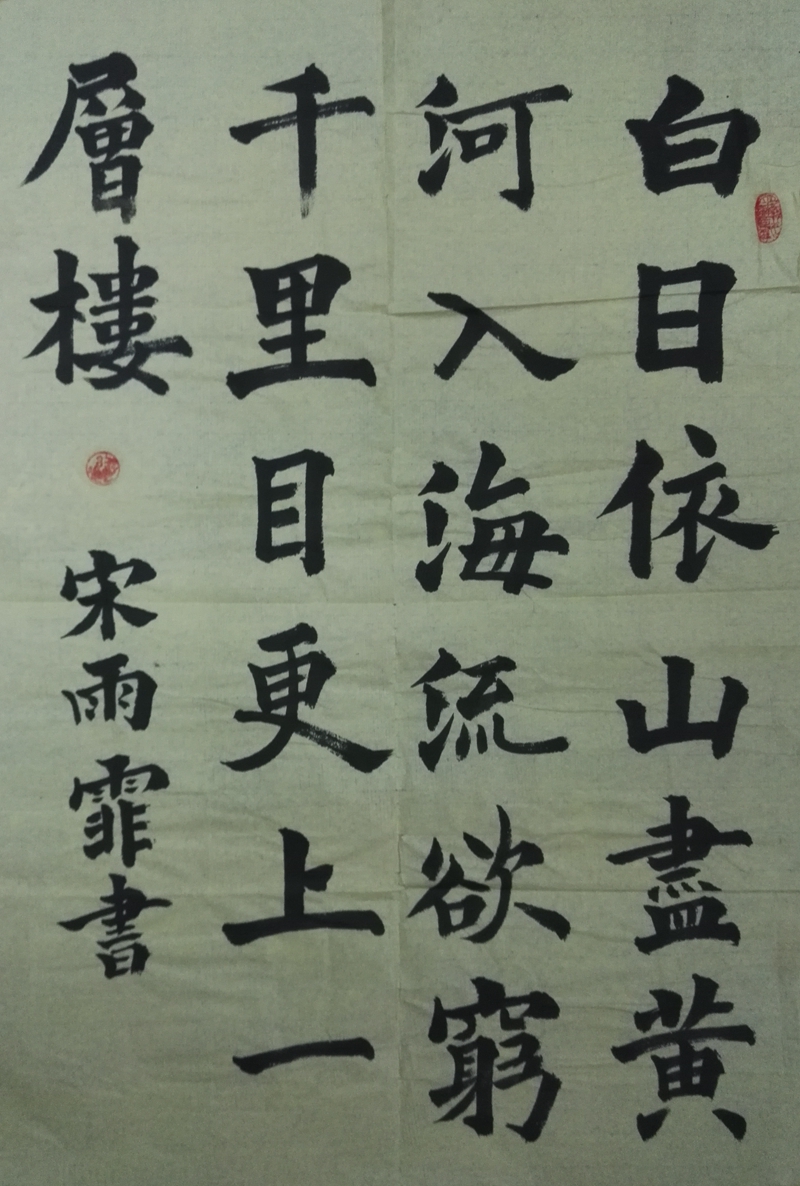 白日依山盡黄
河入海流欲窮
千里目更上一
層樓
宋雨霏書